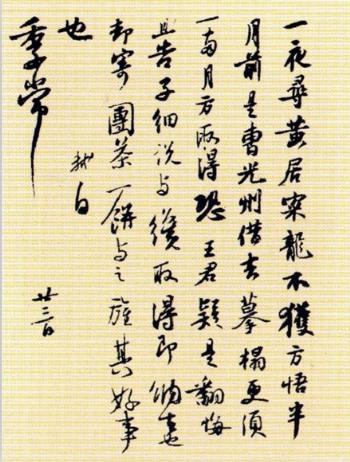 一夜尋黃居寀龍不獲方悟半
月前是曹光州借去摹搨更須
一兩月方取得恐王君疑是翻悔
且告子細說与纔取得即納去也
却寄團茶一餅与之旌其好事
也 軾白
季常
廿三日